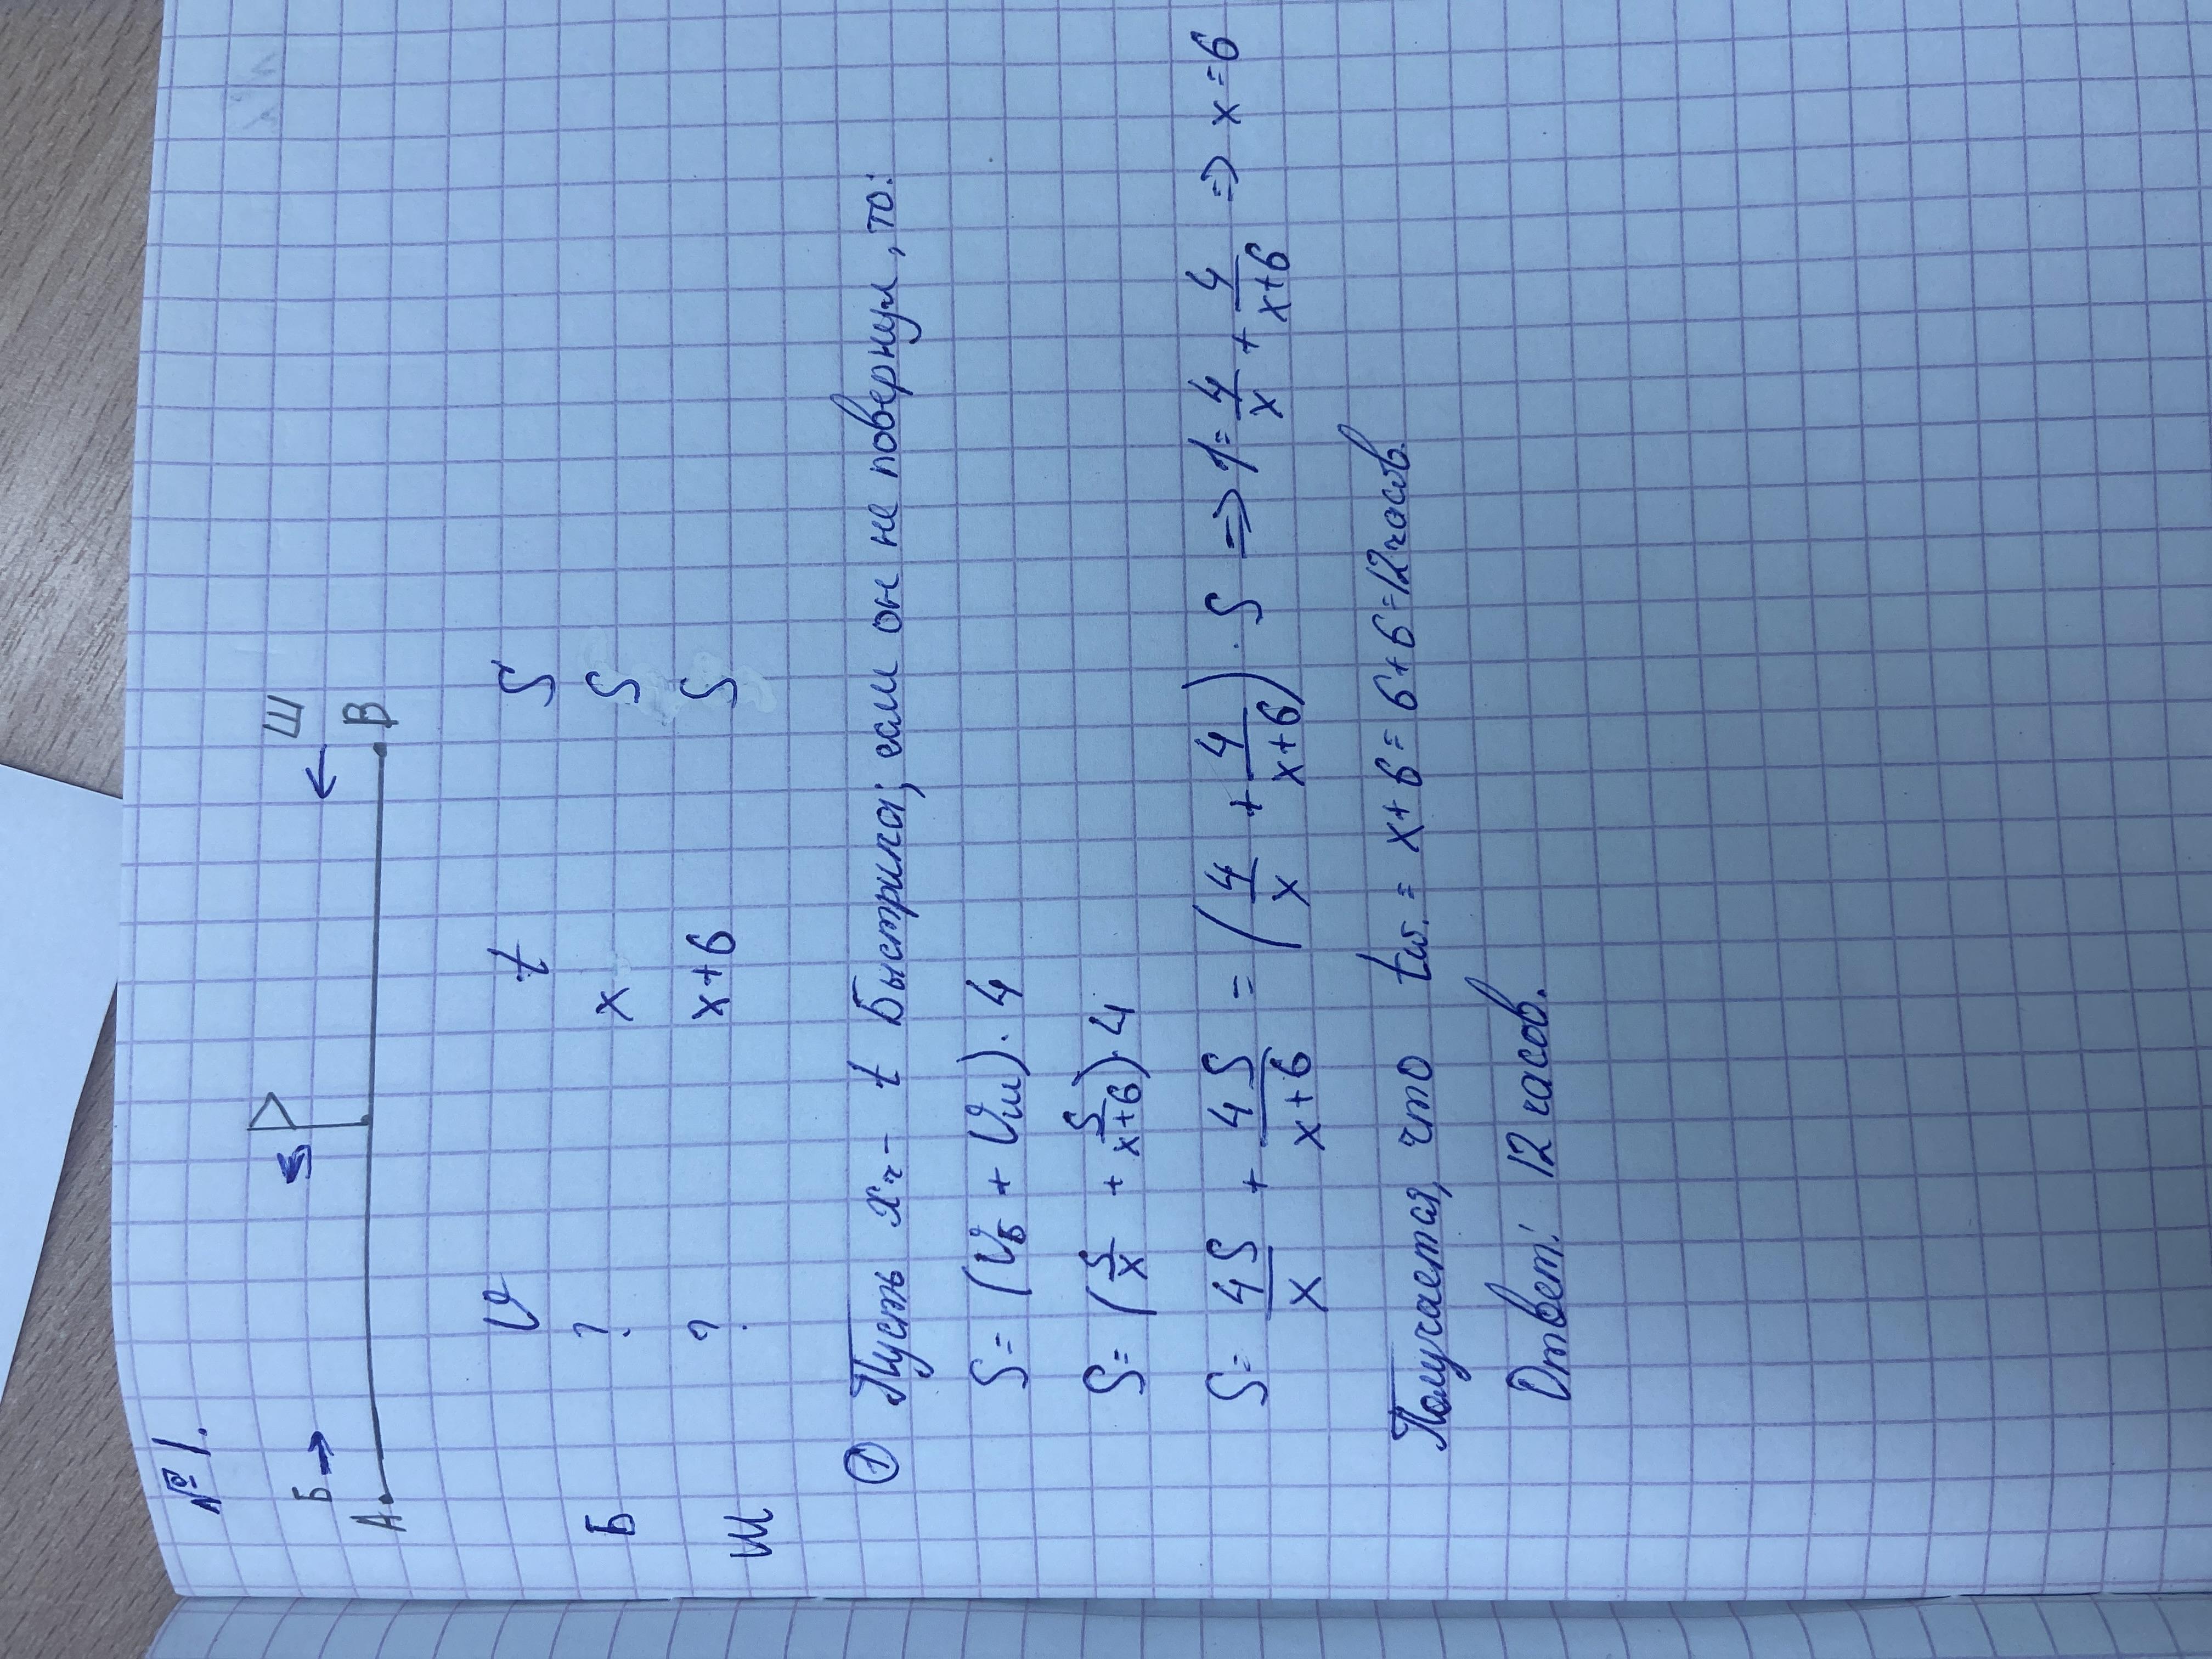 №1.
Б → ← Ш
А В
v t S
Б ? x S
Ш ? x+6 S
① Пусть x ч - t Быстрика; если он не повернул, то:
S = (v_Б + v_Ш) · 4
S = (S/x + S/(x+6)) · 4
S = 4S/x + 4S/(x+6) = (4/x + 4/(x+6)) · S => 1 = 4/x + 4/(x+6) => x = 6
Получается, что t_ш. = x+6 = 6+6 = 12 часов.
Ответ: 12 часов.